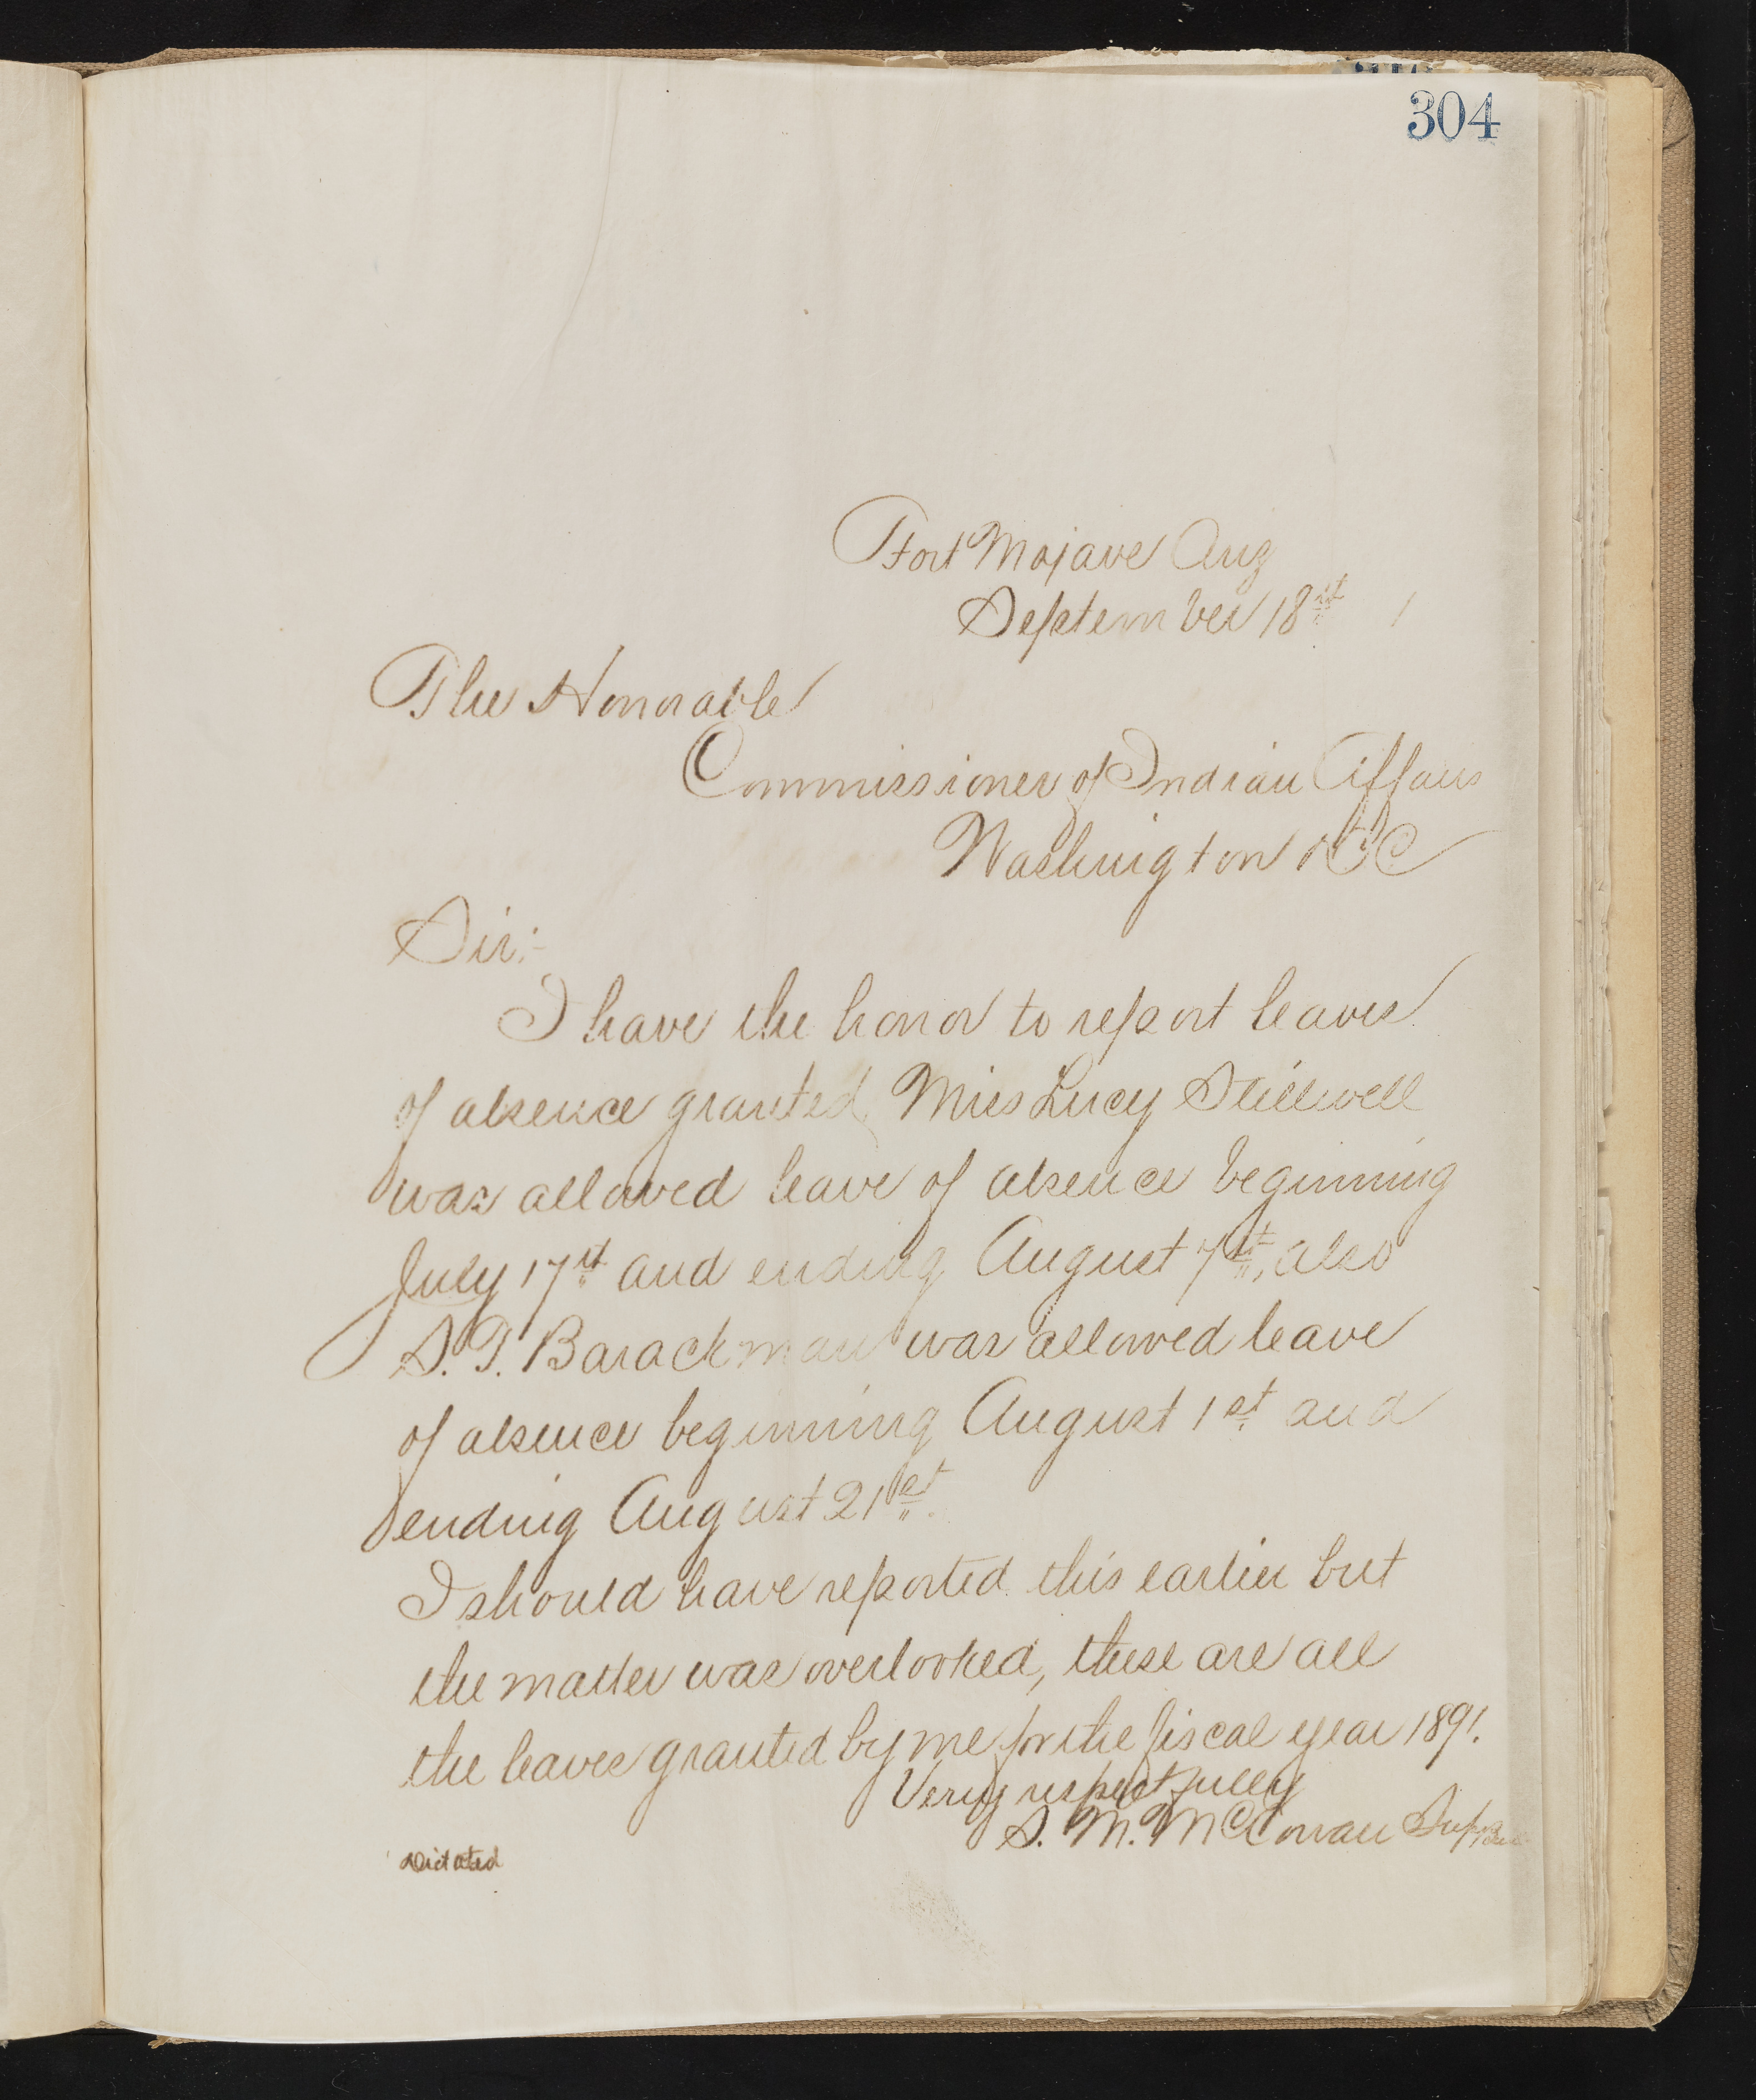 304
Fort Mojave Ariz
September 18st 1
The Honorable
Commissioner of Indian Affairs
Washington D C
Sir:-
I have the honor to report leaves
of absence granted Miss Lucy Stillwell
was allowed leave of absence beginning
July 17st and ending August 7st, also
S. T. Barackman was allowed leave
of absence beginning August 1st and
ending August 21st.
I should have reported this earlier but
the matter was overlooked, these are all
the leaves granted by me for the fiscal year 1891.
Very respectfully
S. M. McCowan
Dictated